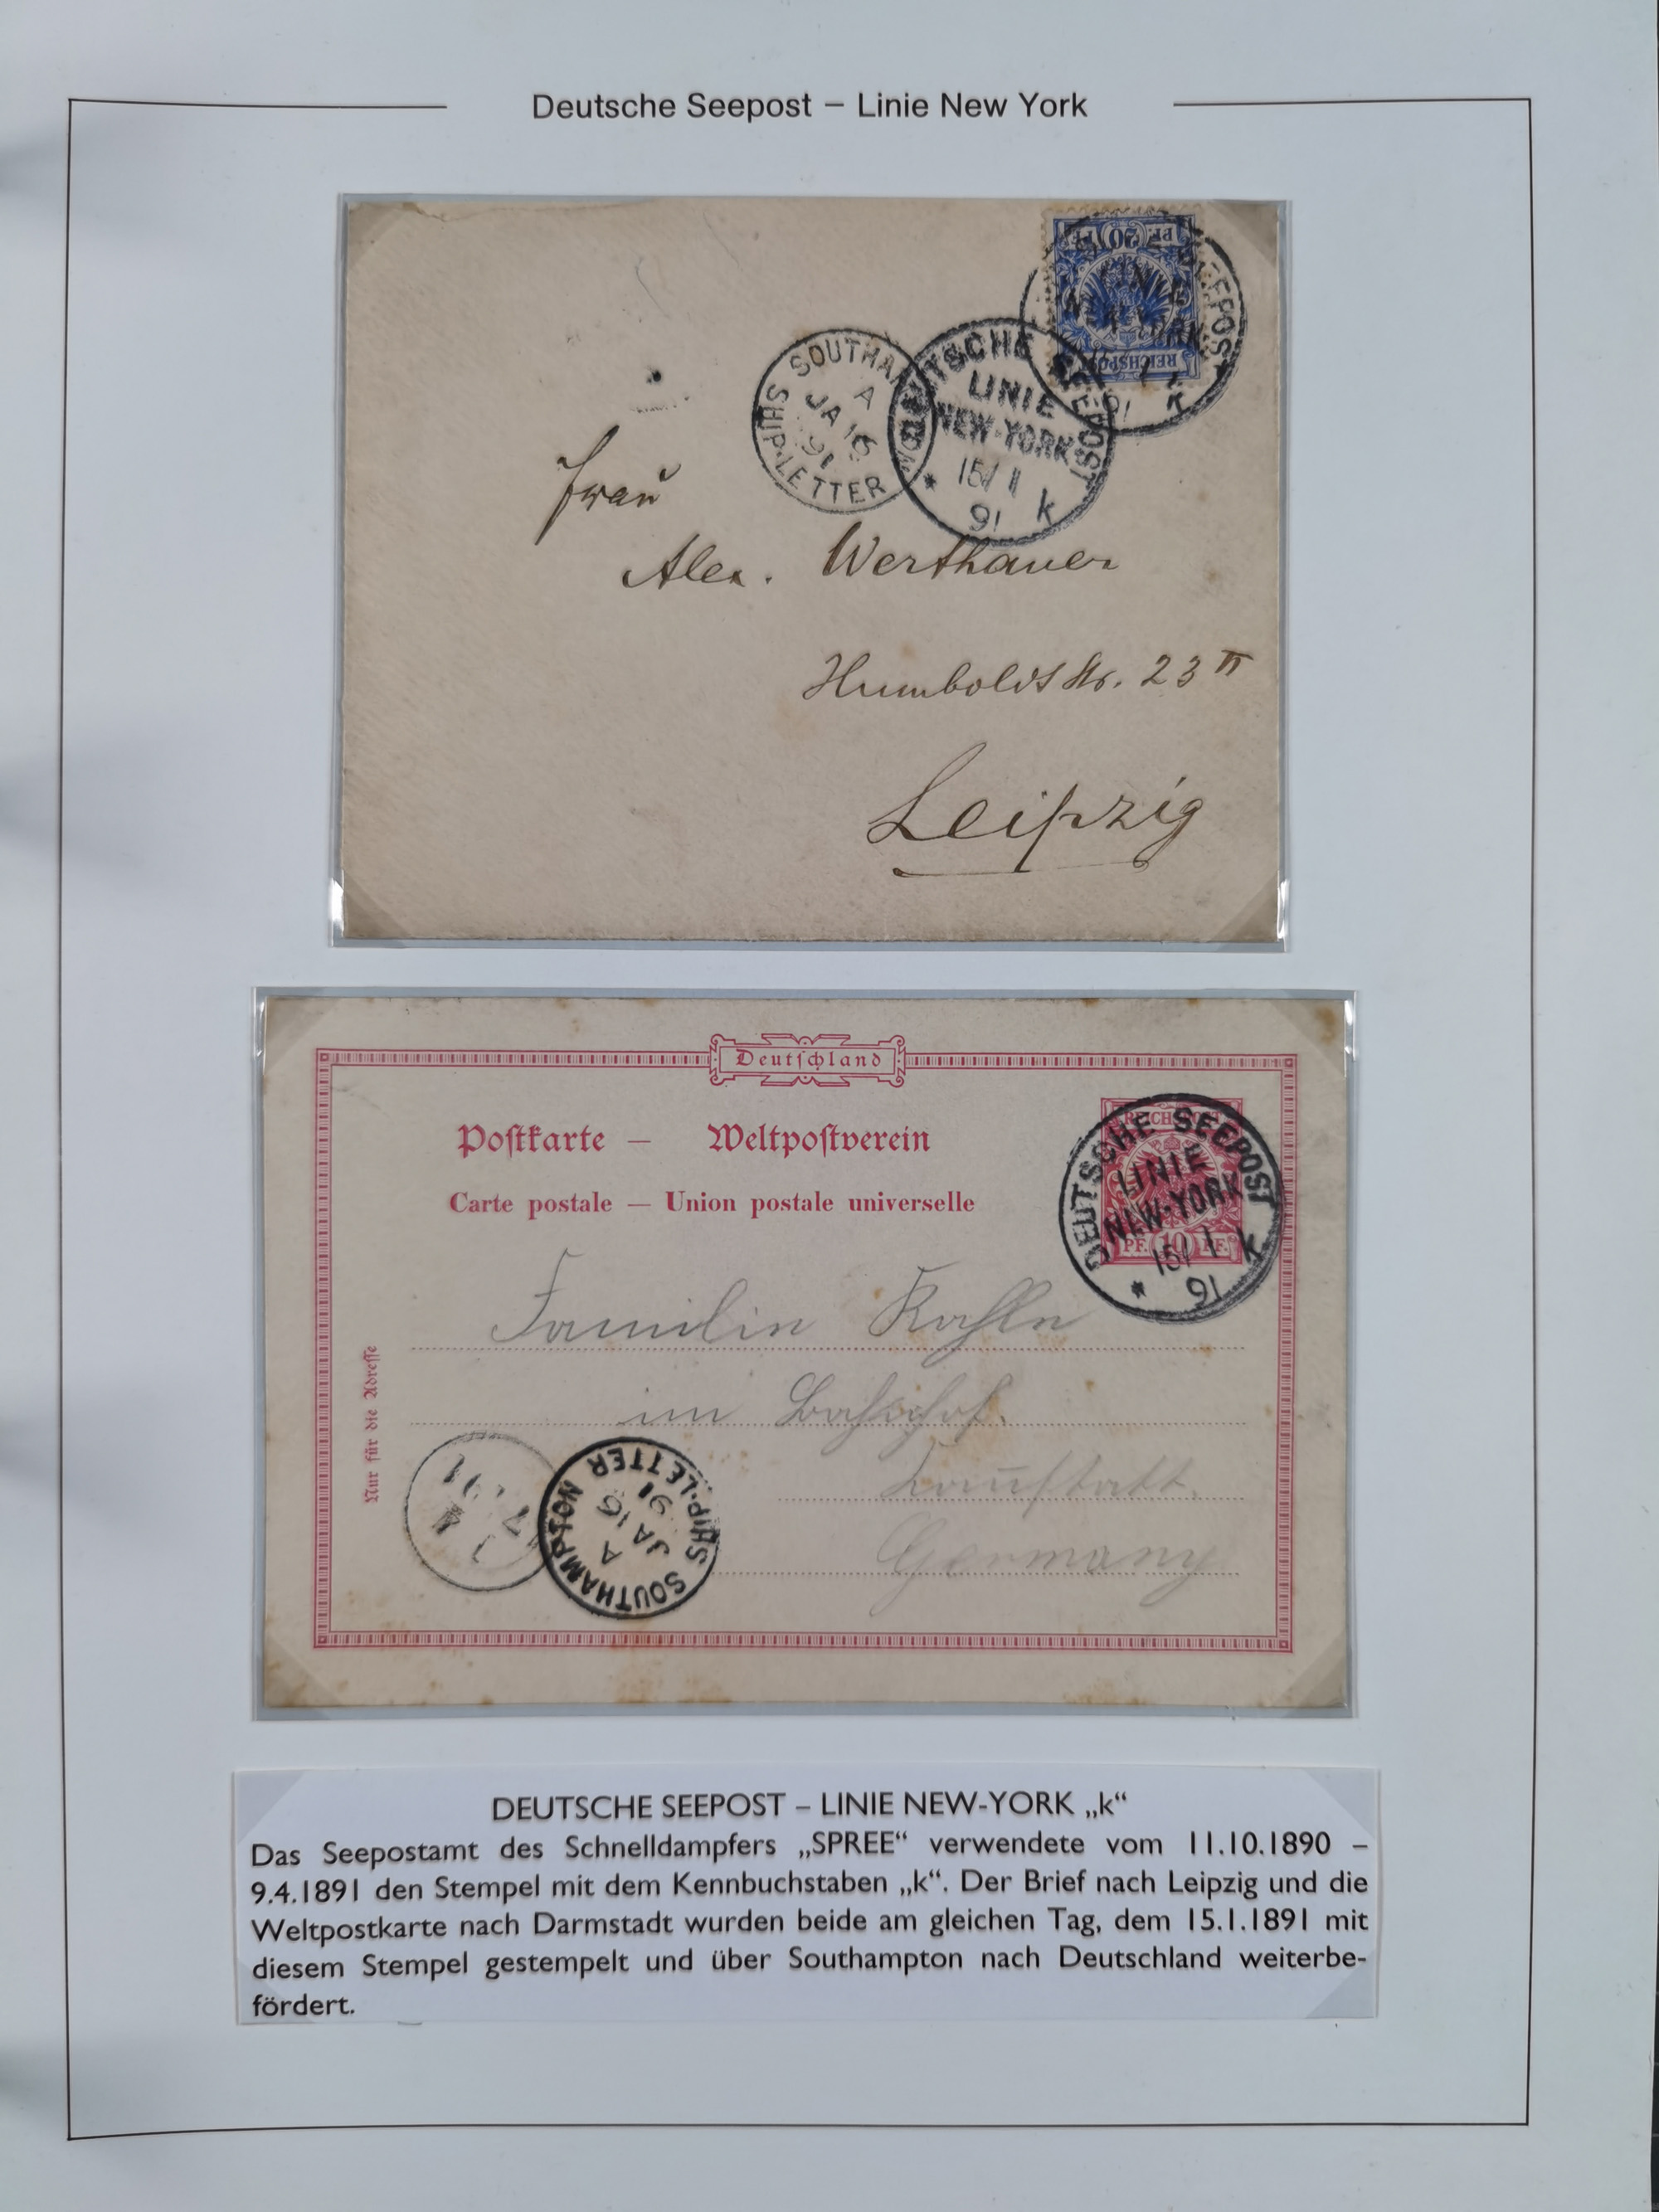 Deutsche Seepost – Linie New York
REICHSPOST
PF. 20 PF.
SEEPOST
LINIE
91 k
SOUTHAMPTON SHIP-LETTER
A
JA 16
91
DEUTSCHE SEEPOST
LINIE
NEW-YORK
* 15/1
91 k
Frau
Alex. Werthauer
Humboldtstr. 23 II
Leipzig
Deutschland
Postkarte – Weltpostverein
Carte postale — Union postale universelle
REICHSPOST
PF. 10 PF.
DEUTSCHE SEEPOST
LINIE
NEW-YORK
15/1 k
* 91
Familie
im Bahnhof.
Germany
Nur für die Adresse
SOUTHAMPTON SHIP-LETTER
A
JA 16
91
DEUTSCHE SEEPOST – LINIE NEW-YORK „k“
Das Seepostamt des Schnelldampfers „SPREE“ verwendete vom 11.10.1890 –
9.4.1891 den Stempel mit dem Kennbuchstaben „k“. Der Brief nach Leipzig und die
Weltpostkarte nach Darmstadt wurden beide am gleichen Tag, dem 15.1.1891 mit
diesem Stempel gestempelt und über Southampton nach Deutschland weiterbe-
fördert.